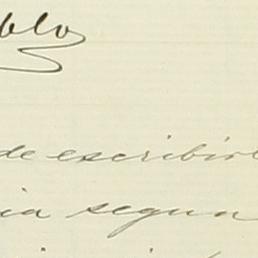 blo
de escribirl
ia segun